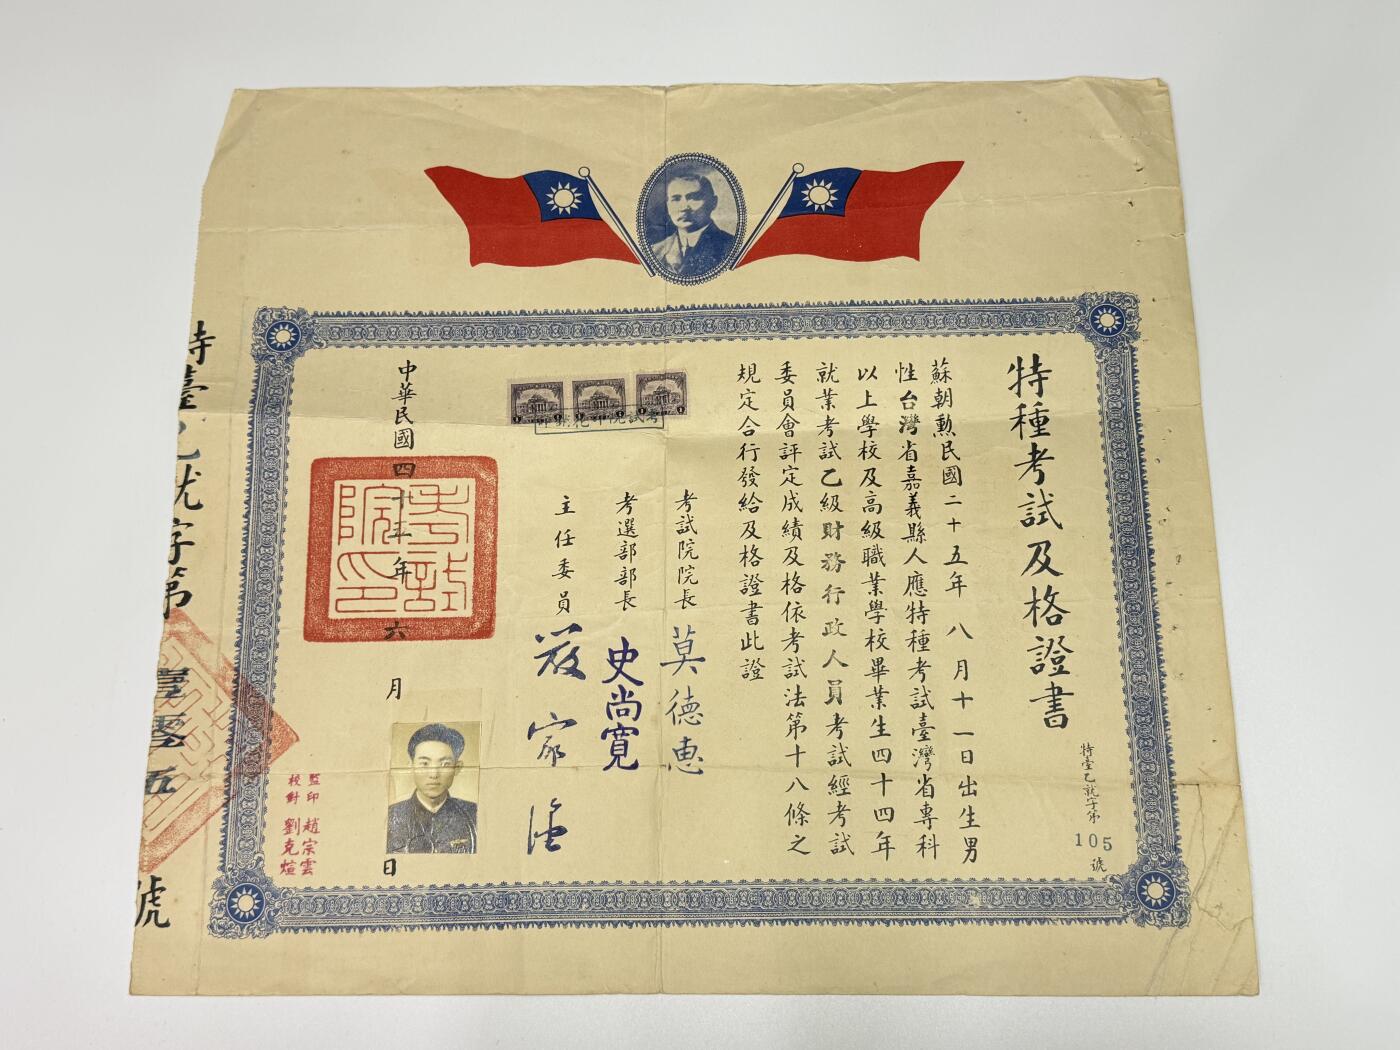 特種考試及格證書
特臺乙就字第
105
號
蘇朝勳民國二十五年八月十一日出生男
性台灣省嘉義縣人應特種考試臺灣省專科
以上學校及高級職業學校畢業生四十四年
就業考試乙級財務行政人員考試經考試
委員會評定成績及格依考試法第十八條之
規定合行發給及格證書此證
考試院院長 莫德惠
考選部部長 史尚寬
主任委員
考試院印花
中華民國四十五年六月日
考試院印
監印 趙宗雲
校對 劉克煊
特臺乙就字第壹零五號